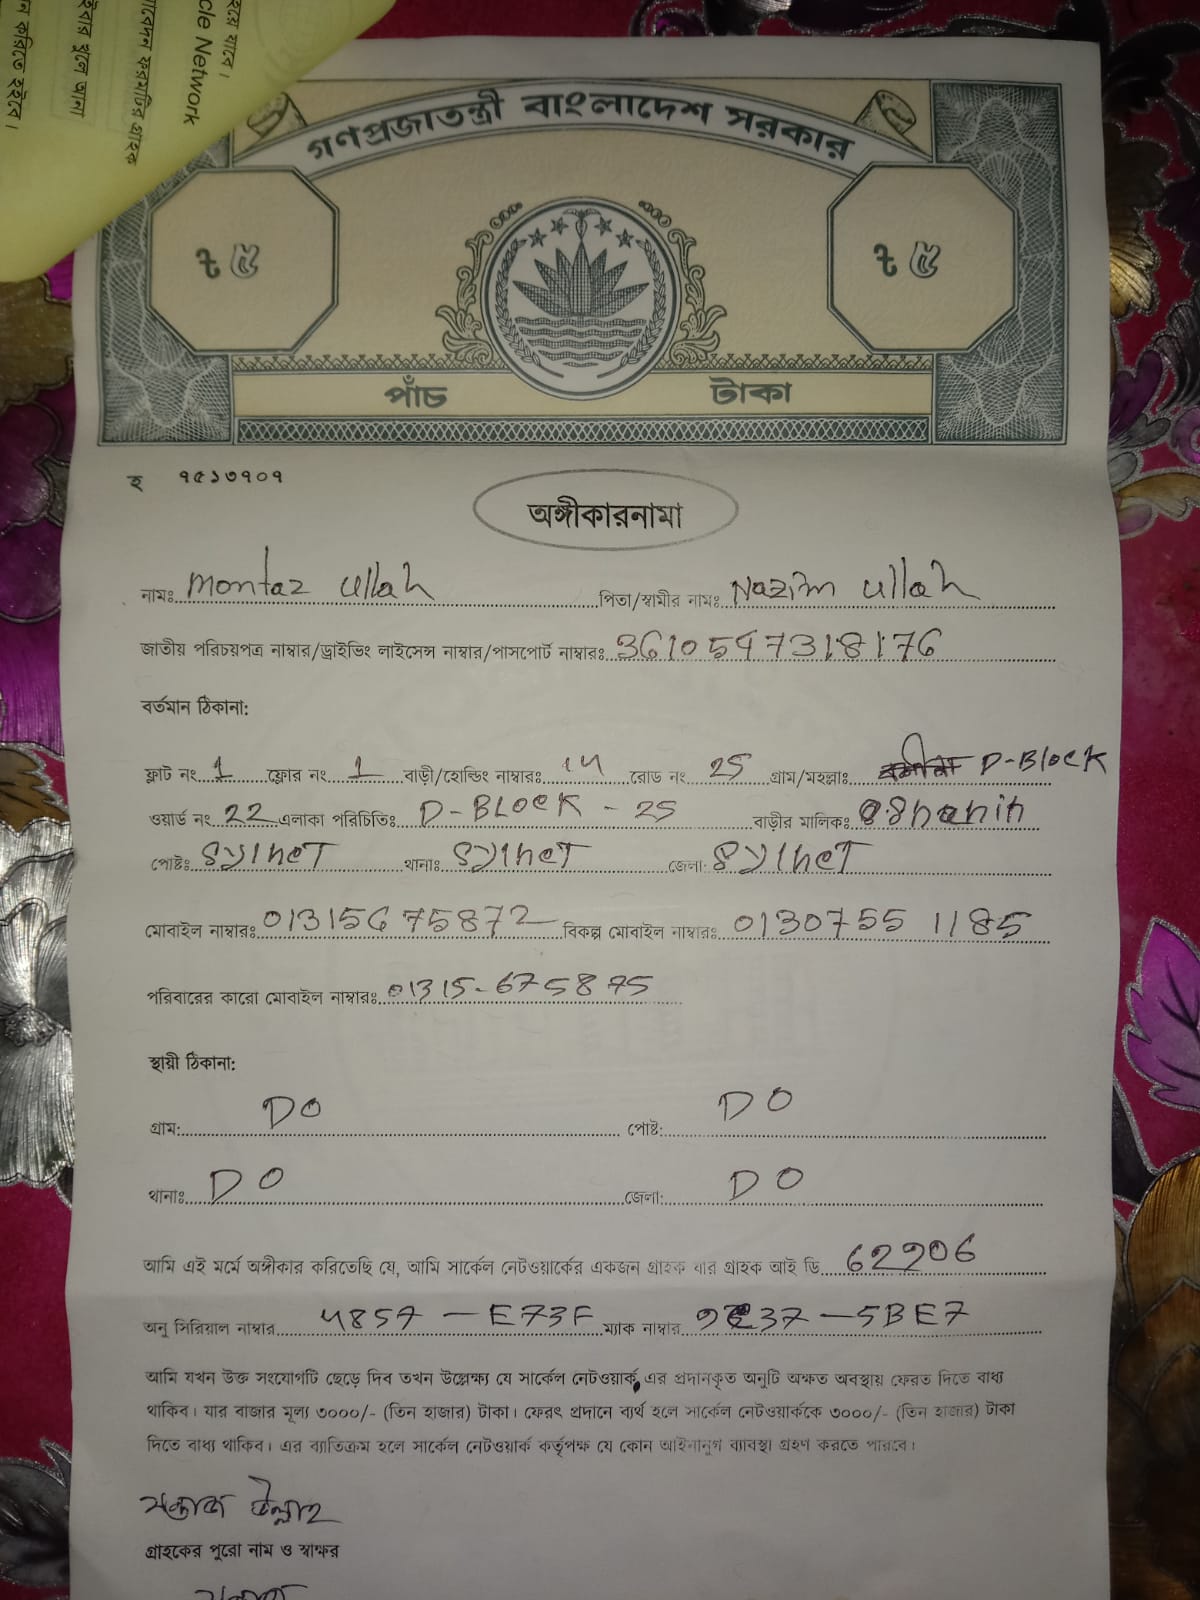 হয়ে যাবে।
cle Network
াবেদন ফরমটির গ্রাহক
ইবার খুলে আনা
ন করিতে হইবে।
গণপ্রজাতন্ত্রী বাংলাদেশ সরকার
৳ ৫ ৳ ৫
পাঁচ টাকা
হ ৭৫১৩৭০৭
অঙ্গীকারনামা
নামঃ Montaz Ullah পিতা/স্বামীর নামঃ Nazim Ullah
জাতীয় পরিচয়পত্র নাম্বার/ড্রাইভিং লাইসেন্স নাম্বার/পাসপোর্ট নাম্বারঃ 3610547318176
বর্তমান ঠিকানা:
ফ্লাট নং 1 ফ্লোর নং 1 বাড়ী/হোল্ডিং নাম্বারঃ 14 রোড নং 25 গ্রাম/মহল্লাঃ D-Block
ওয়ার্ড নং 22 এলাকা পরিচিতিঃ D-BLOCK - 25 বাড়ীর মালিকঃ
পোষ্টঃ Sylhet থানাঃ Sylhet জেলা: Sylhet
মোবাইল নাম্বারঃ 01315675872 বিকল্প মোবাইল নাম্বারঃ 01307551185
পরিবারের কারো মোবাইল নাম্বারঃ 01315-675875
স্থায়ী ঠিকানা:
গ্রাম: DO পোষ্ট: DO
থানাঃ DO জেলা: DO
আমি এই মর্মে অঙ্গীকার করিতেছি যে, আমি সার্কেল নেটওয়ার্কের একজন গ্রাহক যার গ্রাহক আই ডি 62906
অনু সিরিয়াল নাম্বার 4857 - E73F ম্যাক নাম্বার - 5BE7
আমি যখন উক্ত সংযোগটি ছেড়ে দিব তখন উল্লেক্ষ্য যে সার্কেল নেটওয়ার্ক এর প্রদানকৃত অনুটি অক্ষত অবস্থায় ফেরত দিতে বাধ্য
থাকিব। যার বাজার মূল্য ৩০০০/- (তিন হাজার) টাকা। ফেরৎ প্রদানে ব্যর্থ হলে সার্কেল নেটওয়ার্ককে ৩০০০/- (তিন হাজার) টাকা
দিতে বাধ্য থাকিব। এর ব্যতিক্রম হলে সার্কেল নেটওয়ার্ক কর্তৃপক্ষ যে কোন আইনানুগ ব্যাবস্থা গ্রহণ করতে পারবে।
মন্তাজ উল্লাহ
গ্রাহকের পুরো নাম ও স্বাক্ষর